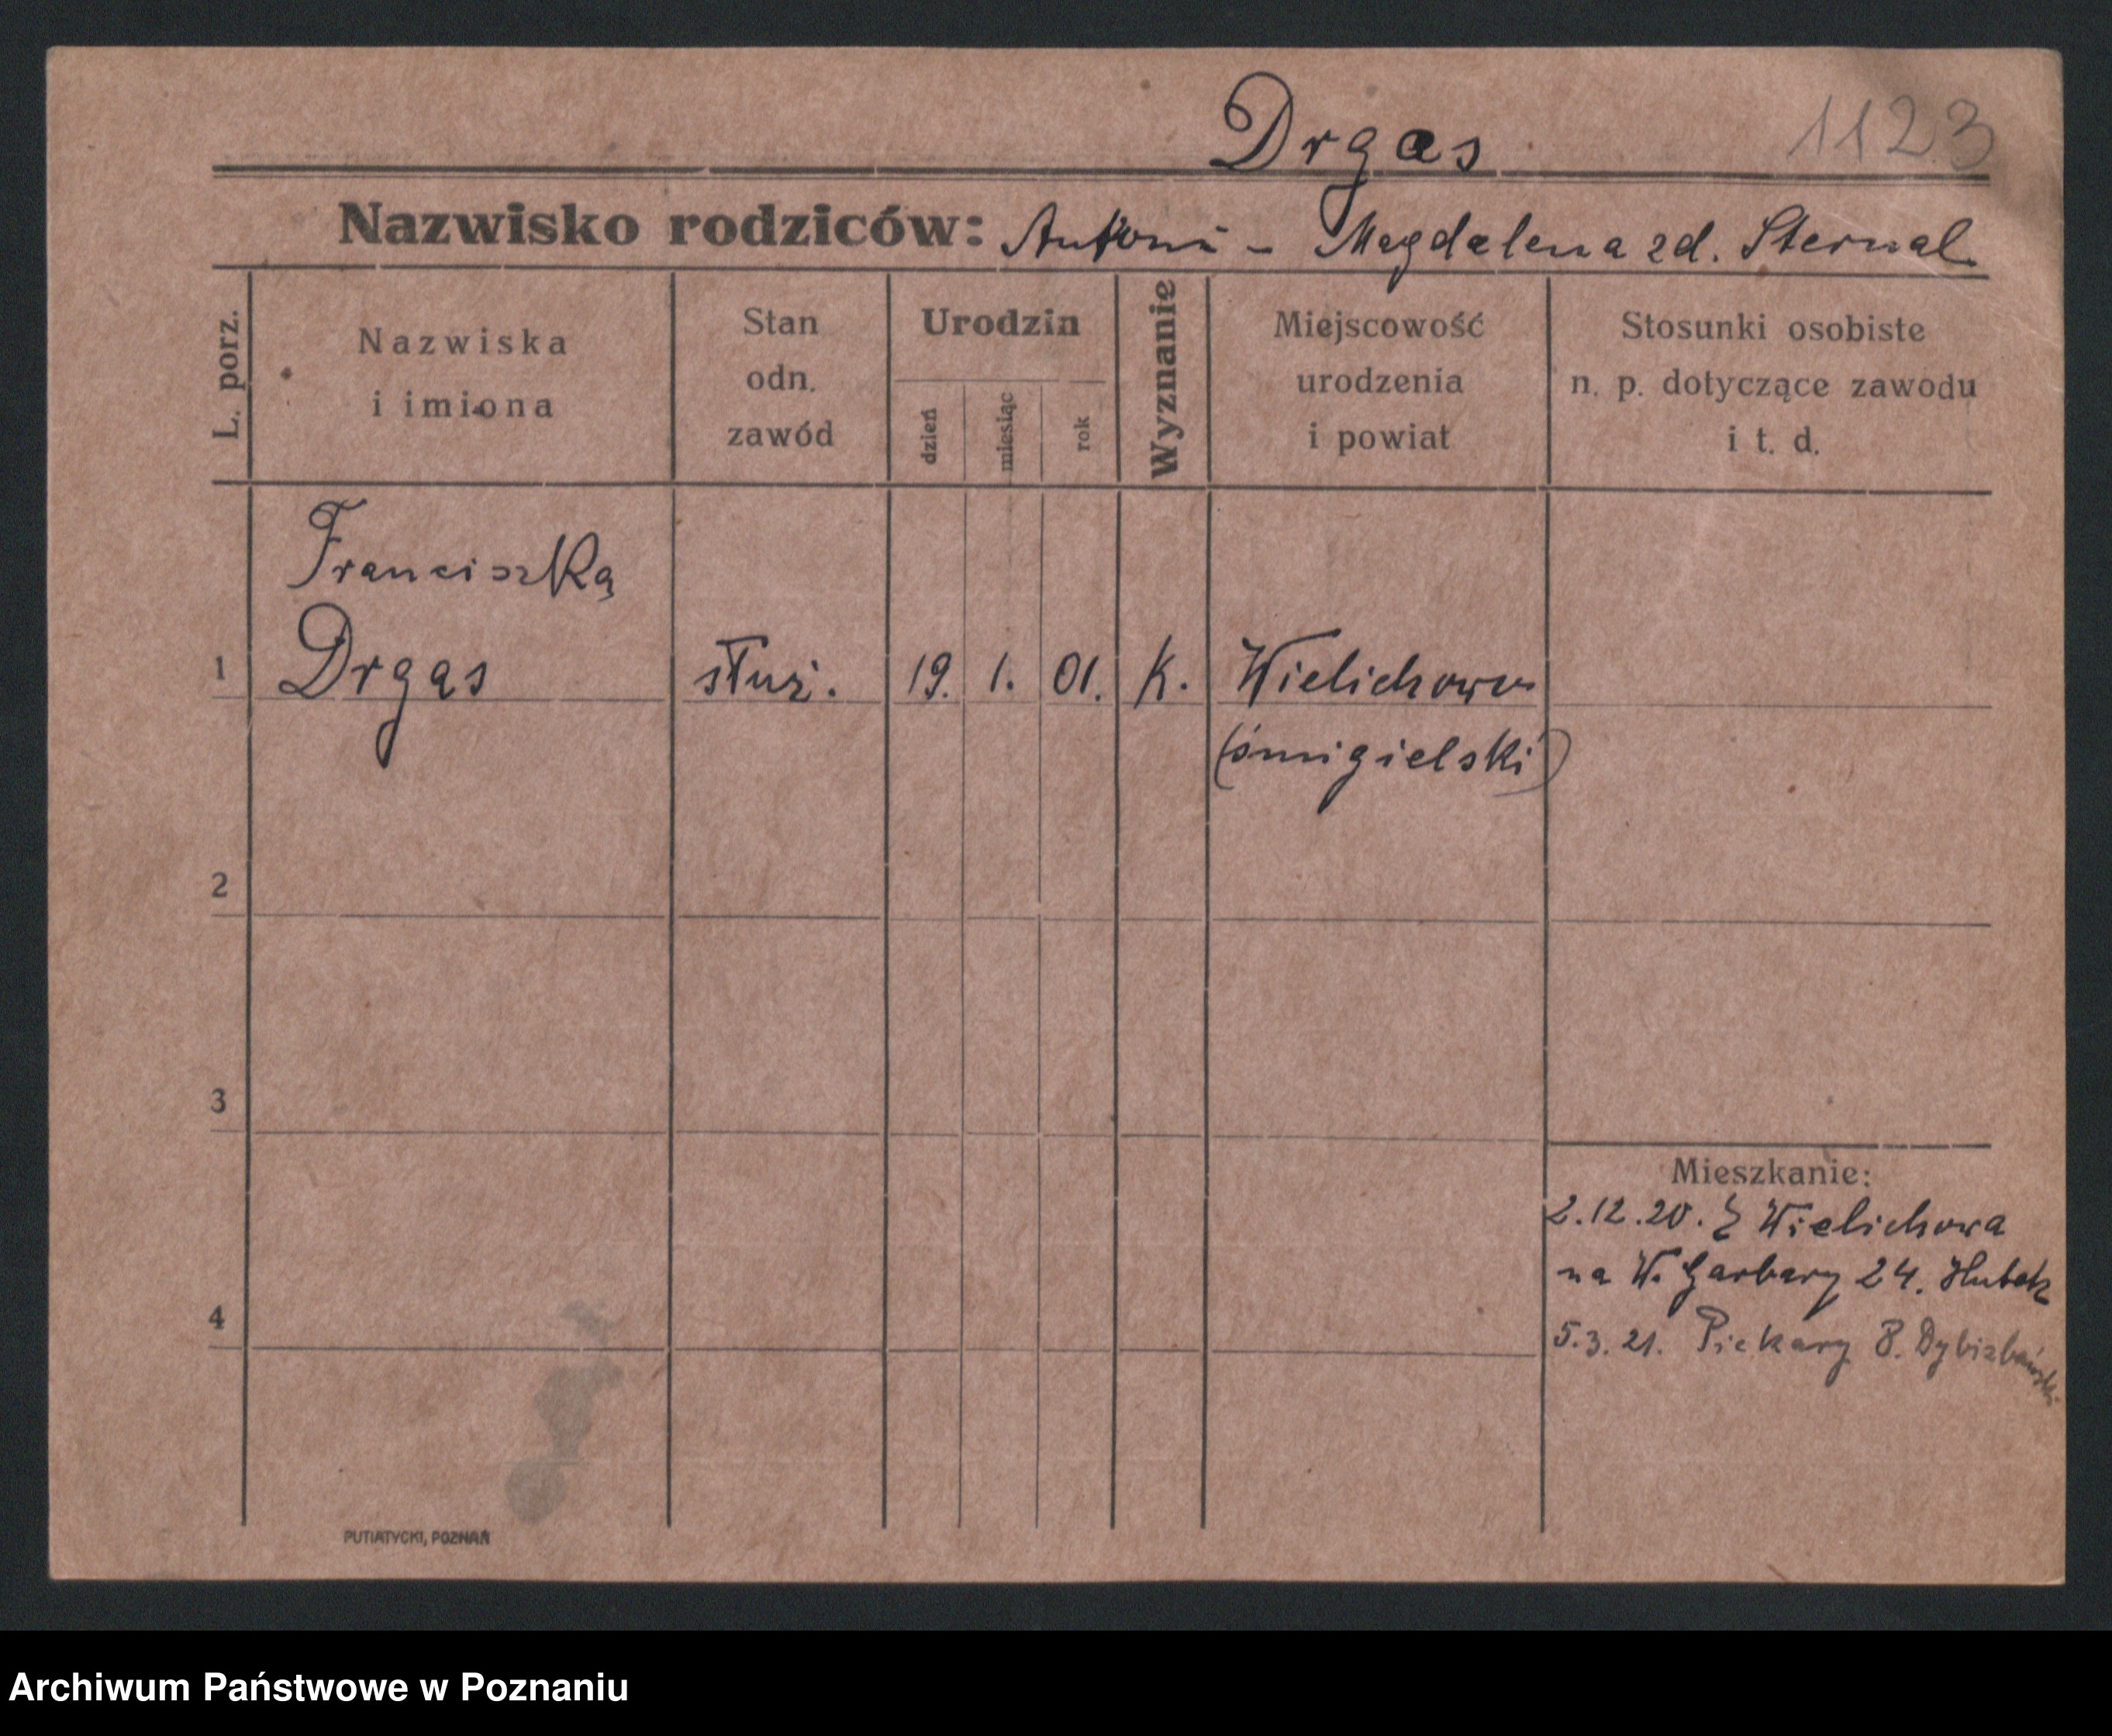 Drgas
1123
Nazwisko rodziców: Antoni - Magdalena zd. Sternal
L. porz.
Nazwiska
i imiona
Stan
odn.
zawód
Urodzin
dzień
miesiąc
rok
Wyznanie
Miejscowość
urodzenia
i powiat
Stosunki osobiste
n. p. dotyczące zawodu
i t. d.
Franciszka
1 Drgas służ. 19. 1. 01. K. Wielichowo
(śmigielski)
2
3
Mieszkanie:
2.12.20. Z Wielichowa
na W. Garbary 24.
4
5.3.21. Piekary 8. Dybizbański
PUTIATYCKI, POZNAŃ
Archiwum Państwowe w Poznaniu